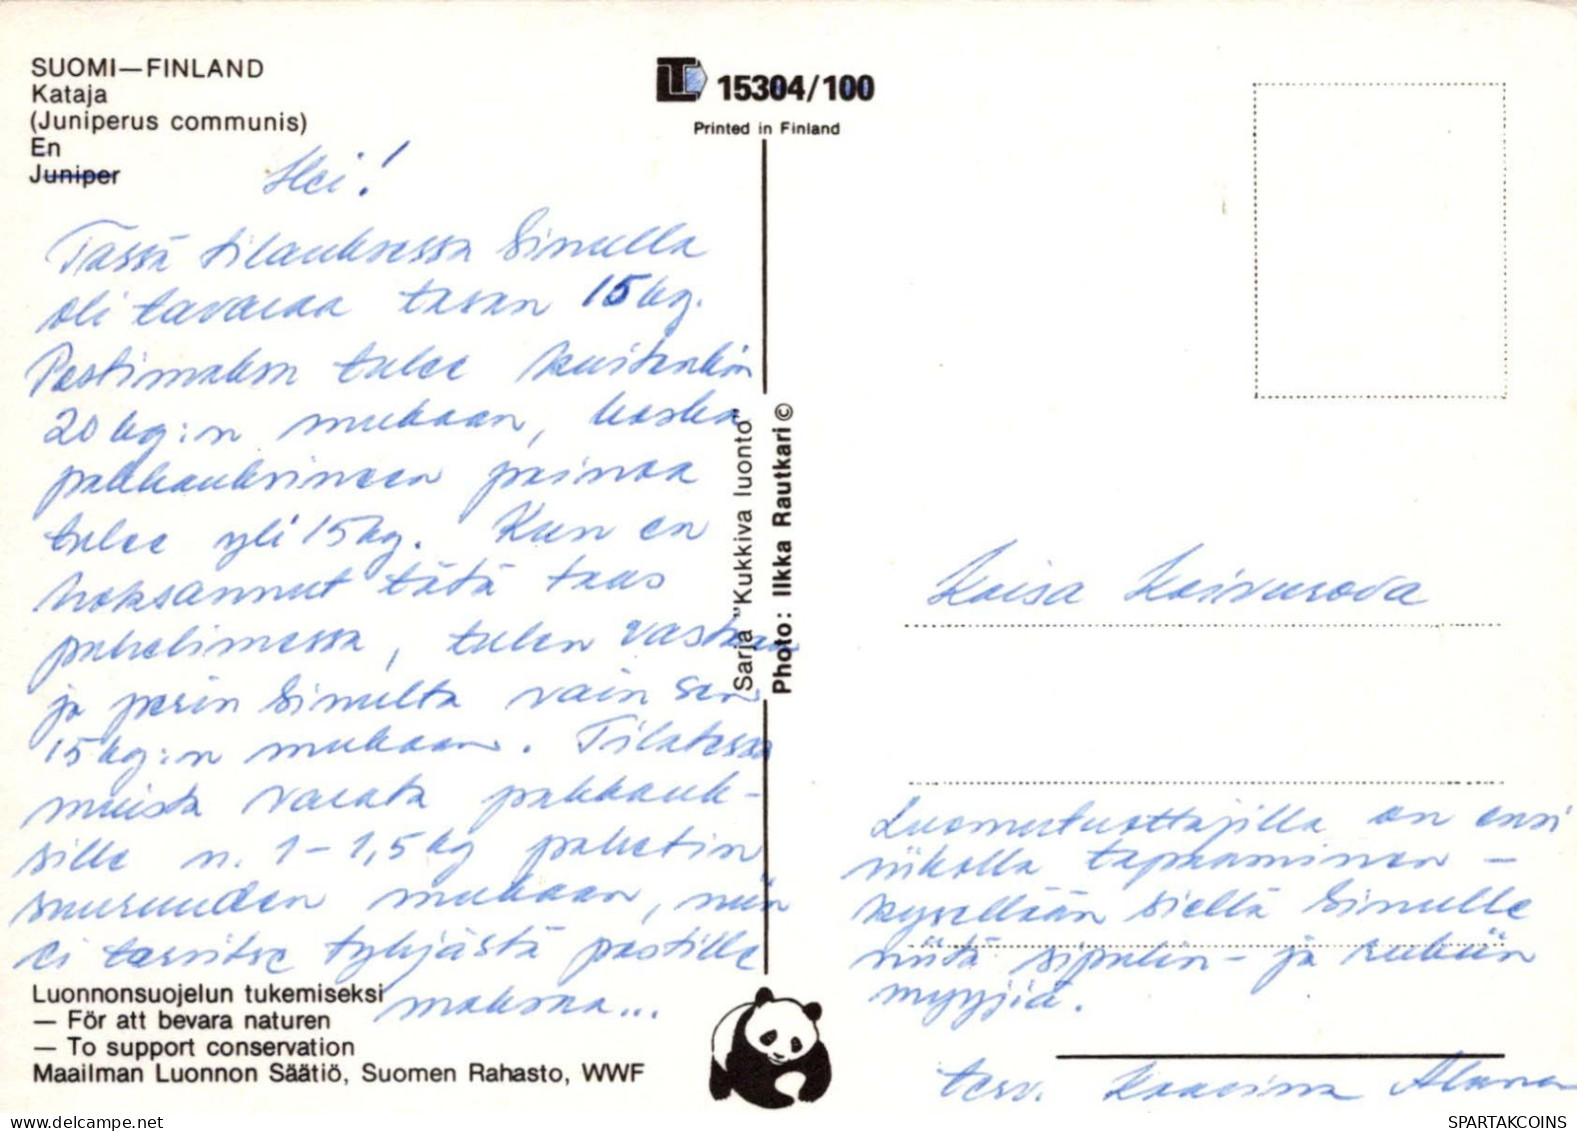 SUOMI—FINLAND
Kataja
(Juniperus communis)
En
Juniper
Hei!
Tässä tilauksessa Sinulla
oli tavaraa tasan 15 kg.
Postimaksu tulee kuitenkin
20 kg:n mukaan, koska
pakkauksineen painoa
tulee yli 15 kg. Kun en
hoksannut tätä taas
puhelimessa, tulen vastaan
ja perin Sinulta vain sen
15 kg:n mukaan. Tilatessa
muista varata pakkauk-
sille n. 1-1,5 kg paketin
suuruuden mukaan, niin
ei tarvitse tyhjästä postille
maksaa...
Luonnonsuojelun tukemiseksi
— För att bevara naturen
— To support conservation
Maailman Luonnon Säätiö, Suomen Rahasto, WWF
LT 15304/100
Printed in Finland
Sarja "Kukkiva luonto"
Photo: Ilkka Rautkari ©
Kaisa
Luomutuottajilla on ensi
viikolla tapaaminen -
kysellään sieltä Sinulle
niitä sipulin- ja kukkien
myyjiä.
terv. Kaarina
SPARTAKCOINS
delcampe.net